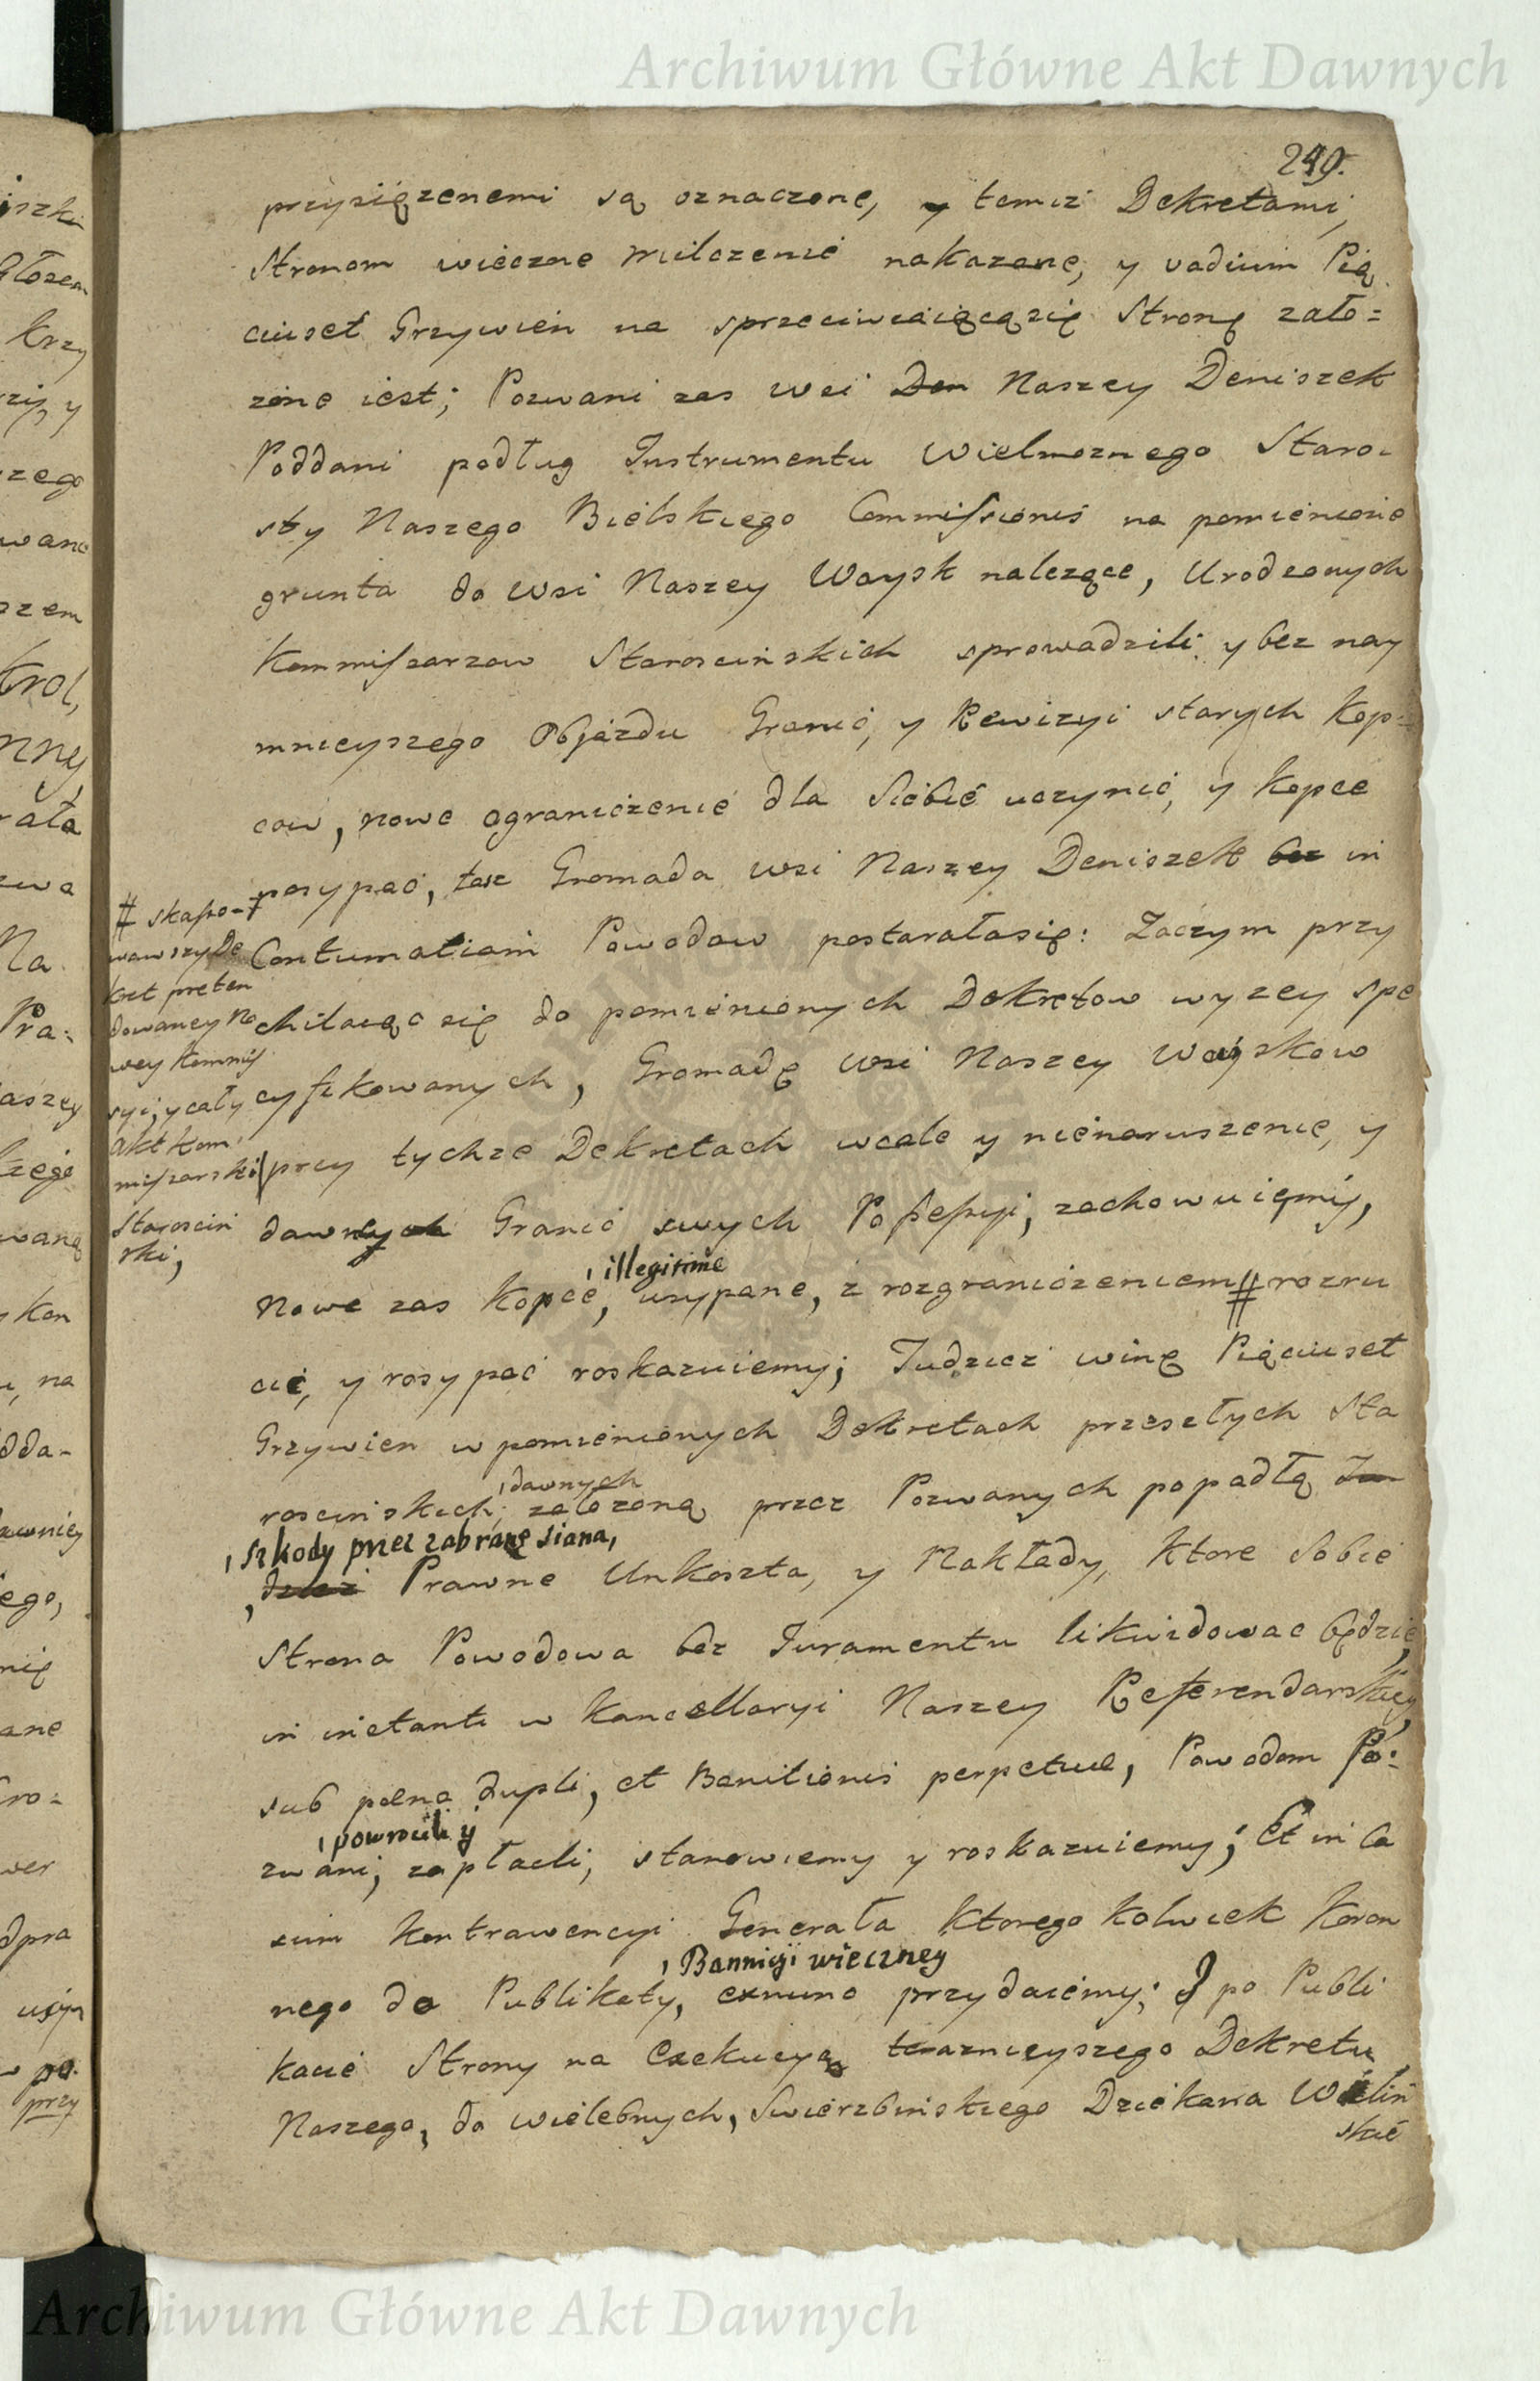 Archiwum Główne Akt Dawnych
240.
przysięzenemi są oznaczone, y temiz Dekretami,
Stronom wieczne milczenie nakazane, y vadium Pię
ciuset Grzywien na sprzeciwiaiącąsię Stronę zało=
zone iest; Pozwani zas wsi Den Naszey Deniszek
Poddani podług Instrumentu Wielmoznego Staro=
sty Naszego Bielskiego Commissionis na pomienione
grunta do wsi Naszey Woysk nalezące, Urodzonych
Kommissarzow Staroscinskich sprowadzili y bez nay
mnieyszego Objazdu Granic, y Rewizyi starych Kop=
cow, nowe ograniczenie dla Siebie uczynić, y kopce
posypać, taz Gromada wsi Naszey Deniszek bez in
Contumatiam Powodow postarałasię: Zaczym przy
chilaiąc się do pomienionych Dekretow wyzey spe
cyfikowanych, Gromadę wsi Naszey Woyskow
przy tychze Dekretach wcale y nienaruszenie, y
dawnych Granic swych Possessyi, zachowuiemy,
illegitime
Nowe zas Kopce, usypane, z rozgraniczeniem # rozru
cić, y rosypać roskazuiemy; Tudziez winę Pięciuset
Grzywien w pomienionych Dekretach przeszłych Sta
dawnych
roscinskich, załozoną przez Pozwanych popadłą Tu
szkody przez zabrane siana,
dziez Prawne Unkoszta, y Nakłady, ktore Sobie
Strona Powodowa bez Juramentu likwidowac będzie,
in instanti w Kancellaryi Naszey Referendarskiey,
sub poena dupli, et Banitionis perpetuae, Powodom Po=
powrocili y
zwani, zapłacili, stanowiemy y roskazuiemy; Et in Ca
sum kontrawencyi Generała ktorego kolwiek Koron
Bannicyi wieczney
nego do Publikaty, exnunc przydaiemy; J po Publi
kacie Strony na Exekucyą teraznieyszego Dekretu
Naszego, do Wielebnych, Swierzbinskiego Dziekana Wielin
skie
# skasso-
wawszy De
kret preten
dowaney No
wey Kommis
syi, y cały
akt kom
missarski
Staroscin
ski,
Archiwum Główne Akt Dawnych